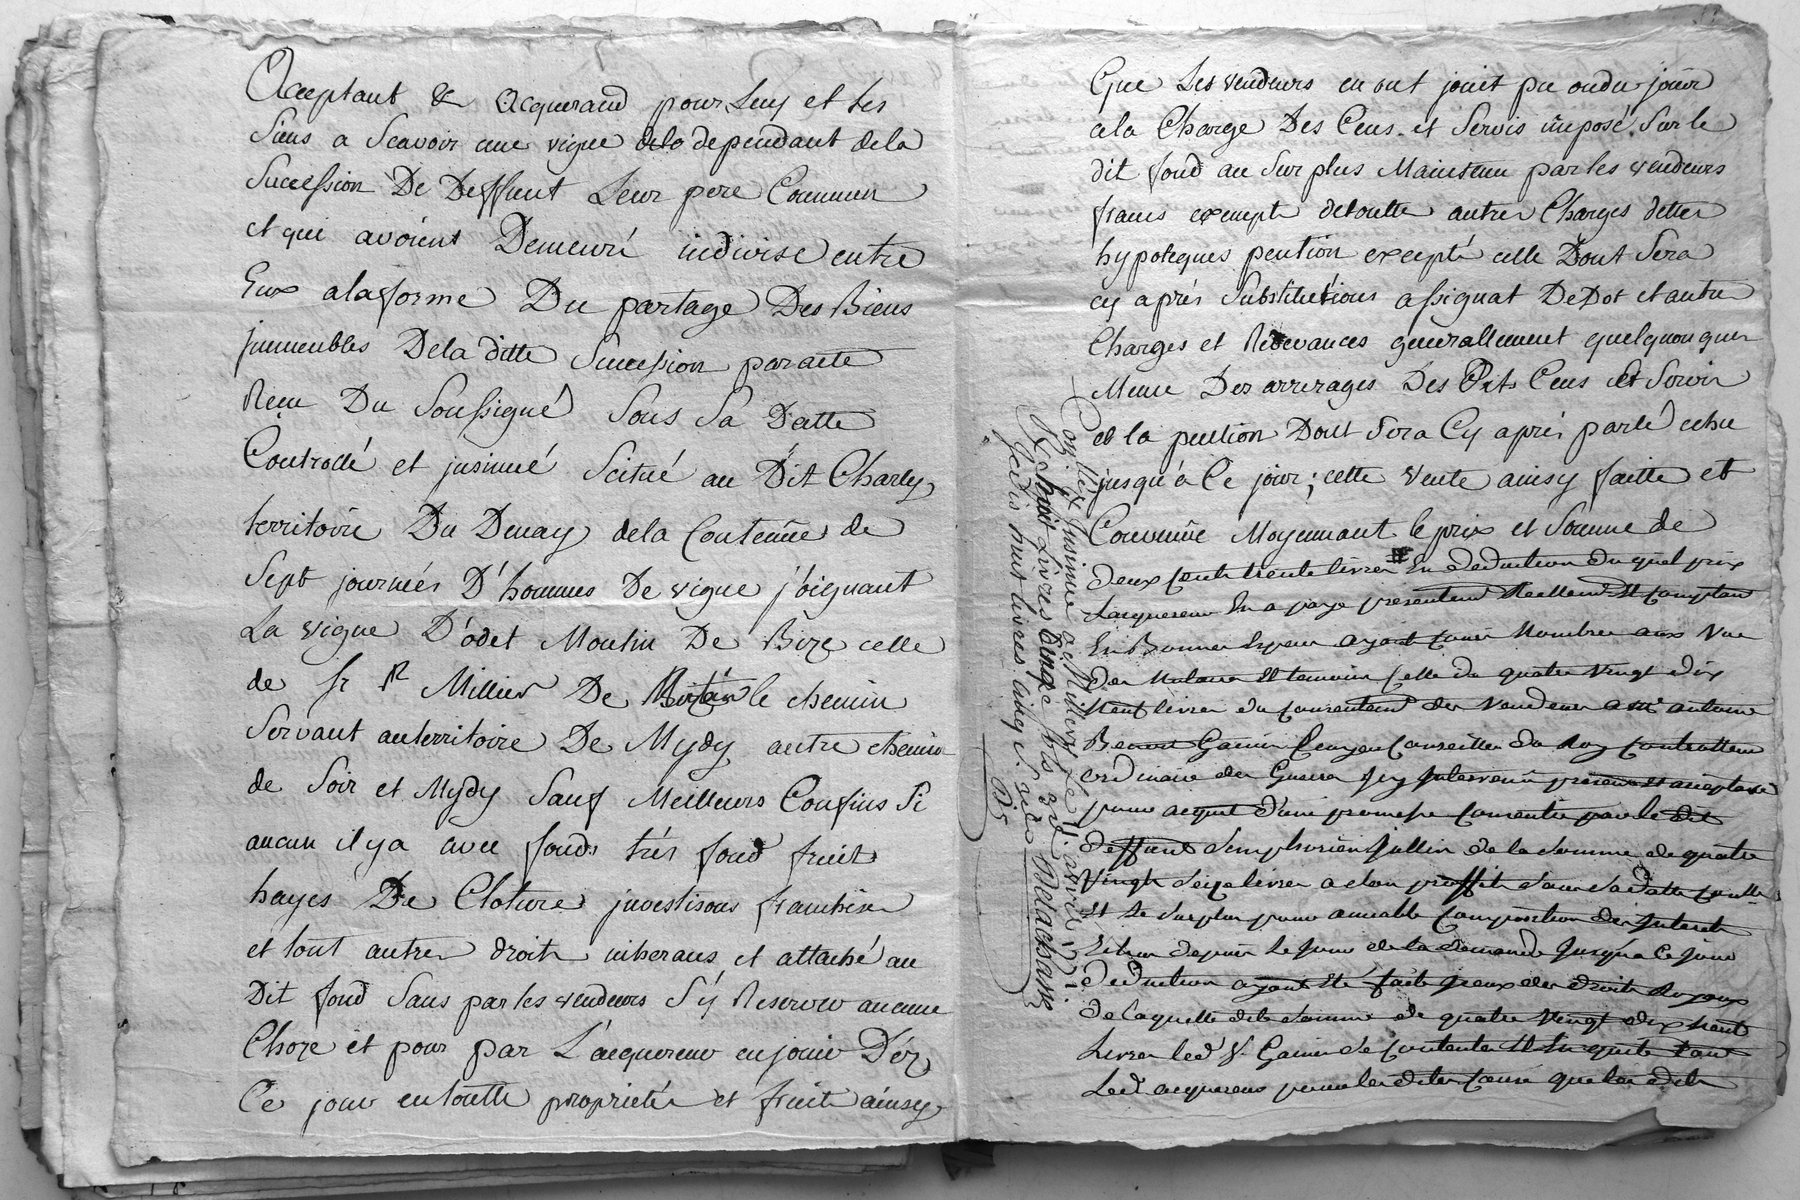 Acceptant & Acquerand pour Luy et les
Siens a Scavoir une vigne dela dependant dela
Succession De Deffunt Leur pere Commun
et qui avoient Demeuré indivise entre
Eux alaforme Du partage Des Biens
jmmeubles Dela ditte Succession par acte
Reçu Du Soussigné Sous Sa Datte
Controllé et jnsinué Scitué au Dit Charly,
territoire Du Denay dela Contenüe de
Sept journées D'hommes De vigne j'oignant
La vigne D'odet Moulin De Bize celle
de Sr Millier De le chemin
Servant auterritoire De Mydy autre chemin
de Soir et Mydy Sauf Meilleurs Confins Si
aucun il y a avec fonds trés fond fruit
hayes De Cloture jnvestisons franchises
et tout autres droits inherans et attaché au
Dit fond Sans par les vendeurs S'y Reserver aucune
Choze et pour par L'acquereur en jouir Déz
Ce jour entoutte proprietés et fruit ainsy
Que Les vendeurs en ont jouit pu oudu jouir
ala Charge Des Cens et Servis imposé Sur le
dit fond au Surplus Maintenu par les vendeurs
francs exempts detoutte autres Charges dettes
hypoteques pention excepté celle Dont Sera
cy aprés Substitutions assignat De Dot et autres
Charges et Redevances generallement quelquonques
Meme Des arrerages Des Dits Cens Et Servis
et la pention Dont Sera Cy aprés parlé echu
jusqu'a Ce jour; cette vente ainsy faitte et
Convenüe Moyennant le prix et Somme de
deux cents trente livres En deduction du quel prix
Lacquereur En a paye presentement Reellement Et Comptant
En Bonnes Especes ayant cours Nombrée aux Vue
des Notaire Et temoins Celle de quatre Vingt dix
huit livres du Consentement des Vendeurs a Mr antoine
Benoist Ganin Conseiller du Roy Controlleur
ordinaire des Guerres jcy jntervenu present Et acceptant
pour acquit d'une promesse Consentie par le dit
deffunt Simphorien Jullin de la Somme de quatre
Vingt Seize livres a Son proffit Sous Sa Datte
Et Le Surplus pour amiable Composition des jnterets
Echus depuis Le jour de la demande jusqu'a Ce jour
deduction ayant Eté faite d'eux des droits Royaux
de laquelle dite Somme de quatre Vingt dix huit
Livres led. Sr Ganin Se Contente Et En quitte tant
Led. acquereur que les dits
Conllé et jnsinué a Millery Le
Reçu huit Livres Cinq Sols
Gerdis huit livres cinq s.